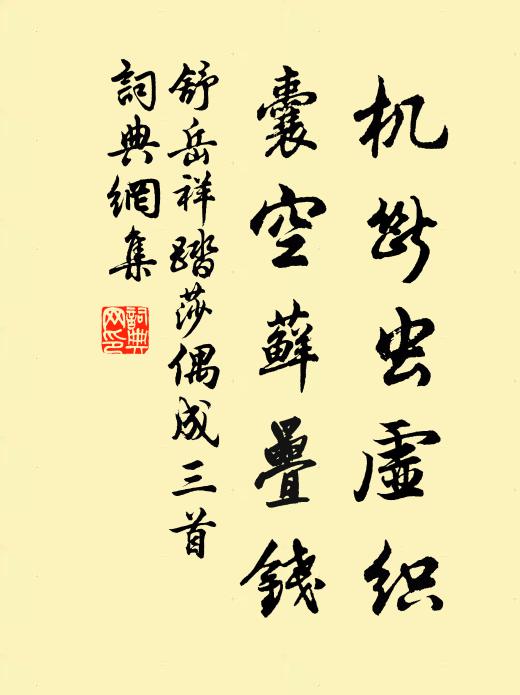 机断虫虚织
囊空藓叠钱
舒岳祥踏莎偶成三首
詞典網集
詞典网印